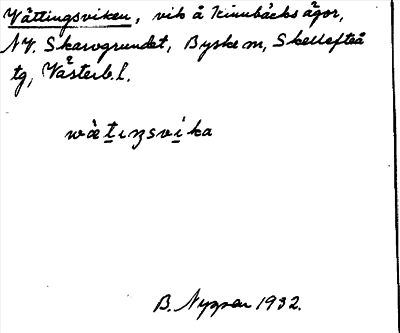 Vättingsviken, vik å Kinnbäcks ägor,
NV. Skarvgrundet, Byske sn, Skellefteå
tg, Västerb. l.
wä̀tıŋsvíka
B. Nygren 1932.